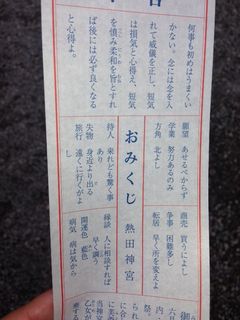 何事も初めはうまくい
かない。念には念を入
れて威儀を正し、短気
は損気と心得え、短気
を慎み柔和を旨とすれ
ば後には必ず良くなる
と心得よ。
願望 あせるべからず
学業 努力あるのみ
方角 北よし
商売 買うによし
争事 困難多し
転居 早く所を変えよ
おみくじ 熱田神宮
待人 来れども驚く事
あり
失物 身近より出る
旅行 遠くに行くがよ
し
縁談 人に相談すれば
早く調う
開運色 藍色
病気 病は気から